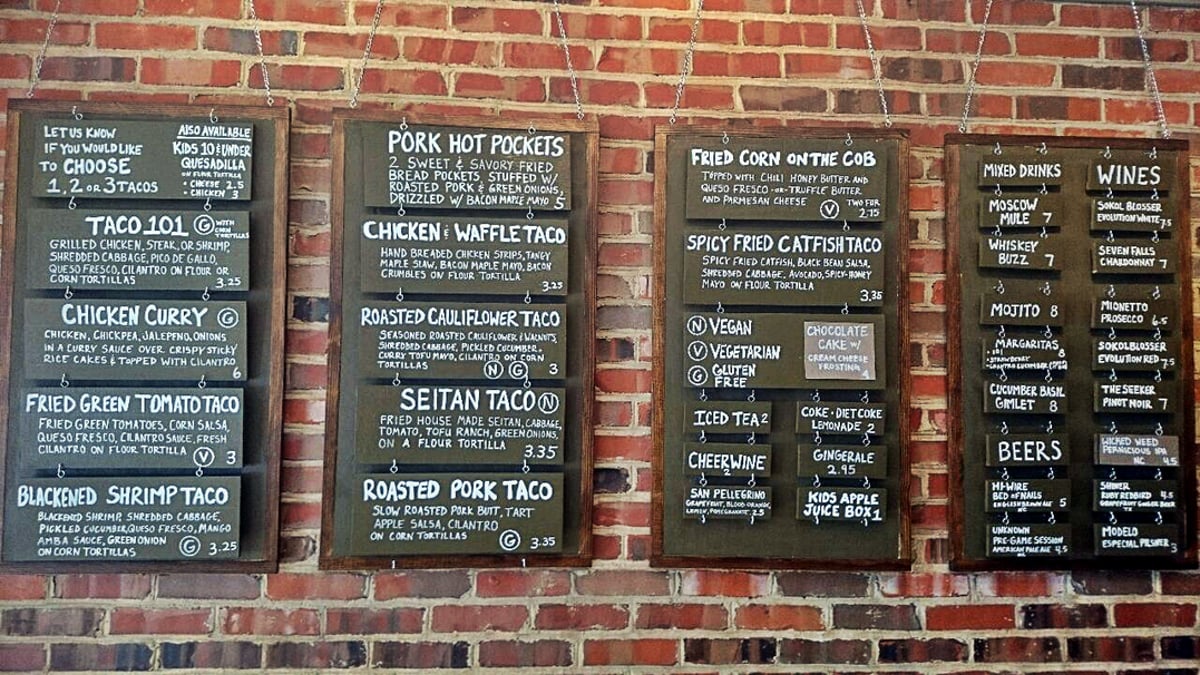 LET US KNOW
IF YOU WOULD LIKE
TO CHOOSE
1, 2 OR 3 TACOS
ALSO AVAILABLE
KIDS 10 & UNDER
QUESADILLA
ON FLOUR TORTILLA
• CHEESE 2.5
• CHICKEN 3
TACO 101 G WITH
CORN
TORTILLAS
GRILLED CHICKEN, STEAK, OR SHRIMP,
SHREDDED CABBAGE, PICO DE GALLO,
QUESO FRESCO, CILANTRO ON FLOUR OR
CORN TORTILLAS 3.25
CHICKEN CURRY G
CHICKEN, CHICKPEA, JALEPENO, ONIONS
IN A CURRY SAUCE OVER CRISPY STICKY
RICE CAKES & TOPPED WITH CILANTRO
6
FRIED GREEN TOMATO TACO
FRIED GREEN TOMATOES, CORN SALSA,
QUESO FRESCO, CILANTRO SAUCE, FRESH
CILANTRO ON FLOUR TORTILLA V 3
BLACKENED SHRIMP TACO
BLACKENED SHRIMP, SHREDDED CABBAGE,
PICKLED CUCUMBER, QUESO FRESCO, MANGO
AMBA SAUCE, GREEN ONION
ON CORN TORTILLAS G 3.25
PORK HOT POCKETS
2 SWEET & SAVORY FRIED
BREAD POCKETS, STUFFED W/
ROASTED PORK & GREEN ONIONS,
DRIZZLED W/ BACON MAPLE MAYO 5
CHICKEN & WAFFLE TACO
HAND BREADED CHICKEN STRIPS, TANGY
MAPLE SLAW, BACON MAPLE MAYO, BACON
CRUMBLES ON FLOUR TORTILLA
3.25
ROASTED CAULIFLOWER TACO
SEASONED ROASTED CAULIFLOWER & WALNUTS,
SHREDDED CABBAGE, PICKLED CUCUMBER,
CURRY TOFU MAYO, CILANTRO ON CORN
TORTILLAS N G 3
SEITAN TACO N
FRIED HOUSE MADE SEITAN, CABBAGE,
TOMATO, TOFU RANCH, GREEN ONIONS,
ON A FLOUR TORTILLA 3.35
ROASTED PORK TACO
SLOW ROASTED PORK BUTT, TART
APPLE SALSA, CILANTRO
ON CORN TORTILLAS G 3.35
FRIED CORN ON THE COB
TOPPED WITH CHILI HONEY BUTTER AND
QUESO FRESCO -OR- TRUFFLE BUTTER
AND PARMESAN CHEESE V TWO FOR
2.75
SPICY FRIED CATFISH TACO
SPICY FRIED CATFISH, BLACK BEAN SALSA,
SHREDDED CABBAGE, AVOCADO, SPICY-HONEY
MAYO ON FLOUR TORTILLA
3.35
N VEGAN
V VEGETARIAN
G GLUTEN
FREE
CHOCOLATE
CAKE W/
CREAM CHEESE
FROSTING
4
ICED TEA 2
COKE · DIET COKE
LEMONADE 2
CHEERWINE
2
GINGERALE
2.95
SAN PELLEGRINO
GRAPEFRUIT, BLOOD ORANGE,
LEMON, POMEGRANATE 2.5
KIDS APPLE
JUICE BOX 1
MIXED DRINKS
MOSCOW
MULE 7
WHISKEY
BUZZ 7
MOJITO 8
MARGARITAS
• 101
• STRAWBERRY
CUCUMBER BASIL
GIMLET 8
BEERS
HI-WIRE
BED OF NAILS
ENGLISH BROWN ALE 5
UNKNOWN
PRE-GAME SESSION
AMERICAN PALE ALE 4.5
WINES
SOKOL BLOSSER
EVOLUTION WHITE 7.5
SEVEN FALLS
CHARDONNAY 7
MIONETTO
PROSECCO 6.5
SOKOL BLOSSER
EVOLUTION RED 7.5
THE SEEKER
PINOT NOIR 7
WICKED WEED
PERNICIOUS IPA
NC 4.5
SHINER
RUBY REDBIRD 4.5
GRAPEFRUIT GINGER BEER
MODELO
ESPECIAL PILSNER 3